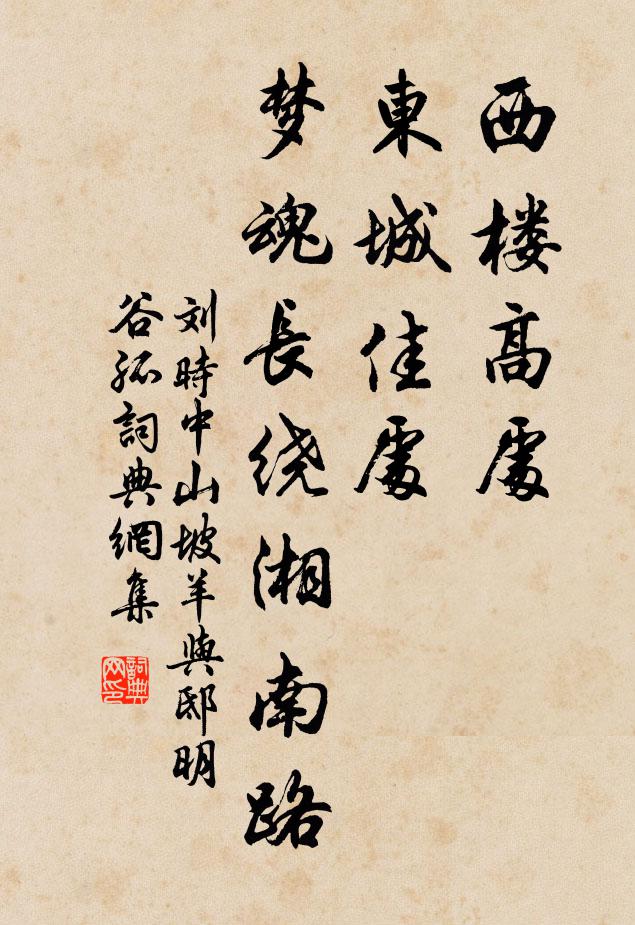 西楼高處
東城佳處
梦魂長绕湘南路
刘時中山坡羊與邸明
谷孤詞典網集
詞典网印